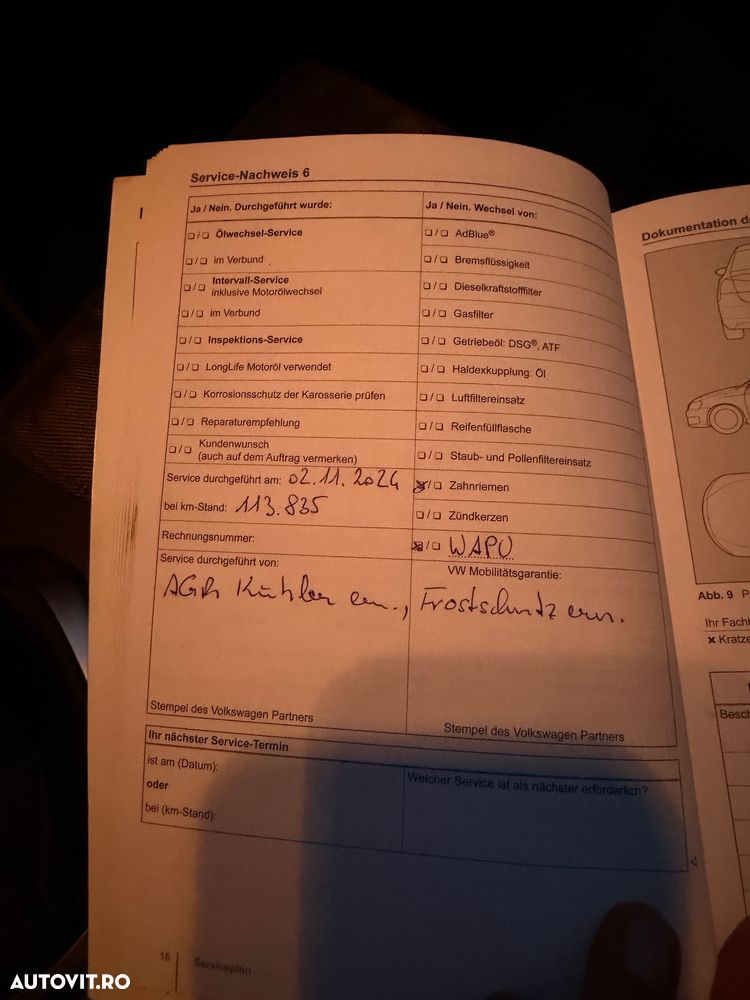 Service-Nachweis 6
Ja / Nein. Durchgeführt wurde:
❑ / ❑ Ölwechsel-Service
❑ / ❑ im Verbund
❑ / ❑ Intervall-Service
inklusive Motorölwechsel
❑ / ❑ im Verbund
❑ / ❑ Inspektions-Service
❑ / ❑ LongLife Motoröl verwendet
❑ / ❑ Korrosionsschutz der Karosserie prüfen
❑ / ❑ Reparaturempfehlung
❑ / ❑ Kundenwunsch
(auch auf dem Auftrag vermerken)
Service durchgeführt am: 02.11.2024
bei km-Stand: 113.835
Rechnungsnummer:
Service durchgeführt von:
Ja / Nein. Wechsel von:
❑ / ❑ AdBlue®
❑ / ❑ Bremsflüssigkeit
❑ / ❑ Dieselkraftstofffilter
❑ / ❑ Gasfilter
❑ / ❑ Getriebeöl: DSG®, ATF
❑ / ❑ Haldexkupplung: Öl
❑ / ❑ Luftfiltereinsatz
❑ / ❑ Reifenfüllflasche
❑ / ❑ Staub- und Pollenfiltereinsatz
☒ / ❑ Zahnriemen
❑ / ❑ Zündkerzen
☒ / ❑ WAPU
VW Mobilitätsgarantie:
AGR Kühler ern., Frostschutz ern.
Stempel des Volkswagen Partners
Stempel des Volkswagen Partners
Ihr nächster Service-Termin
ist am (Datum):
oder
bei (km-Stand):
Welcher Service ist als nächster erforderlich?
16
Serviceplan
Dokumentation d
Abb. 9 P
Ihr Fach
✖ Kratze
Besch
AUTOVIT.RO